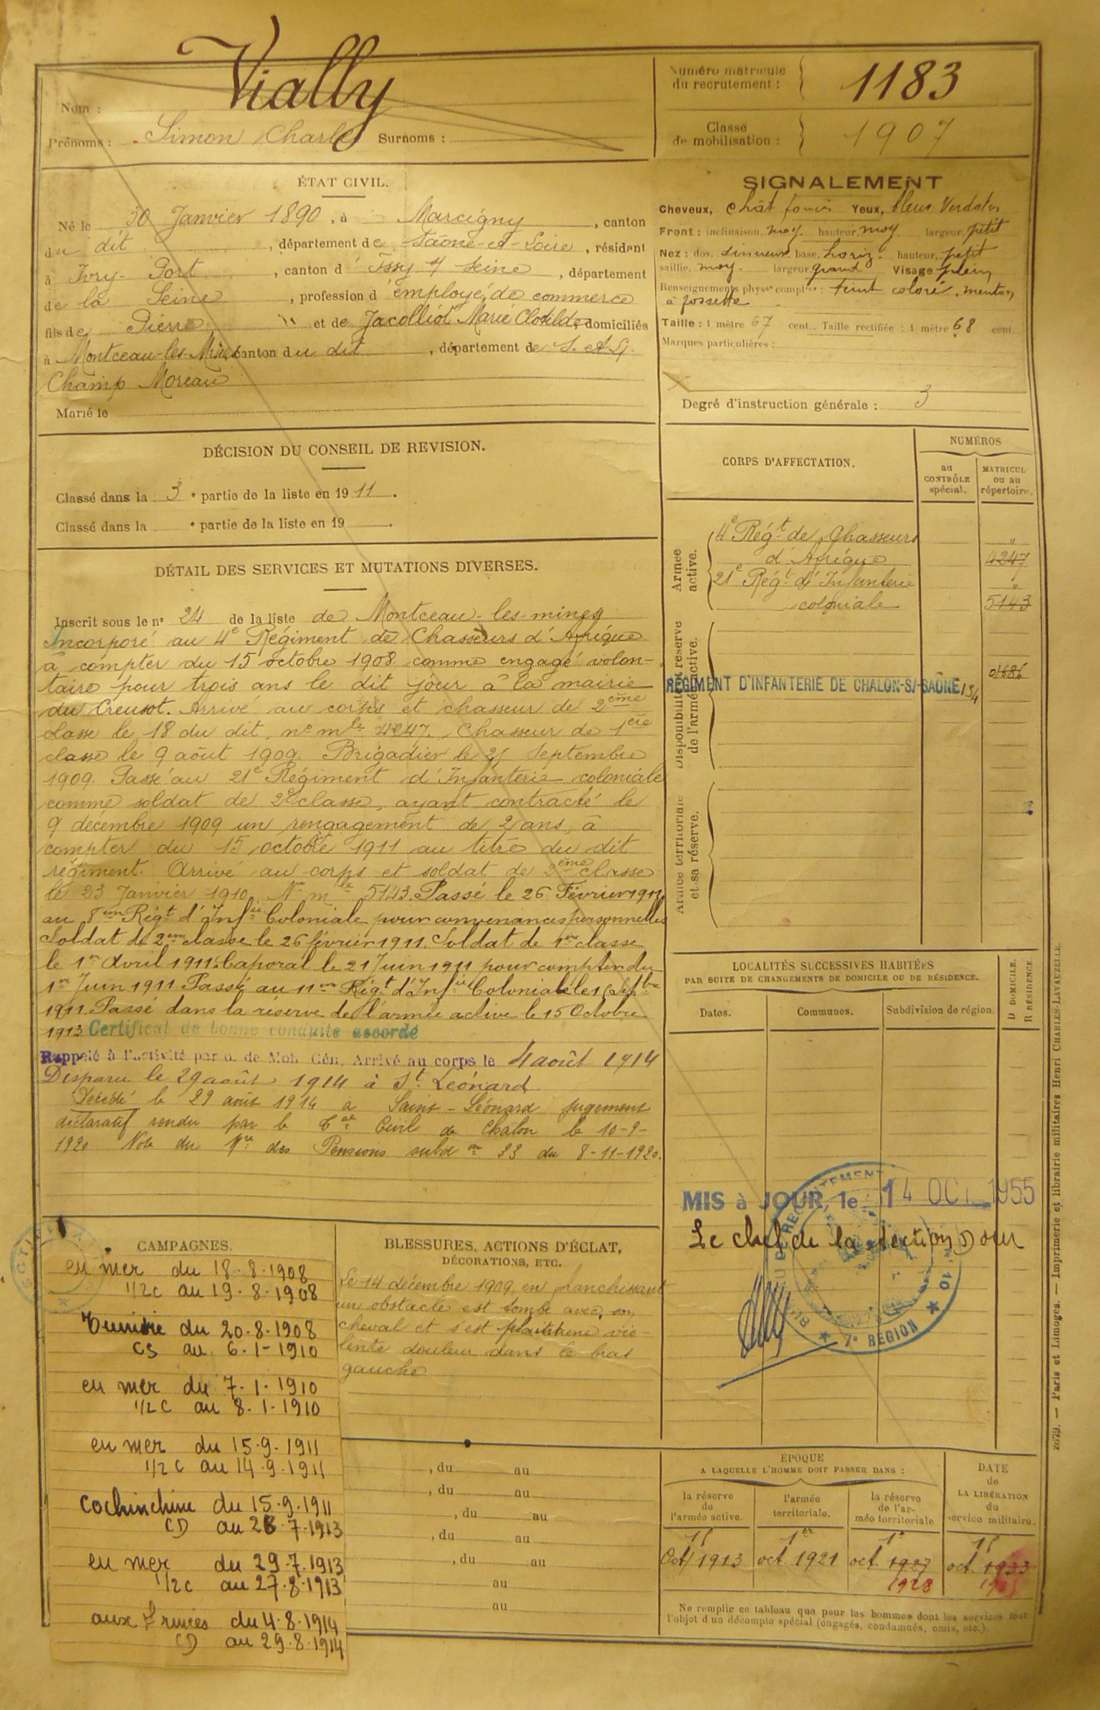 Vially
Nom :
Prénoms : Simon Charles Surnoms :
Numéro matricule
du recrutement : 1183
Classe
de mobilisation : 1907
ÉTAT CIVIL.
Né le 30 Janvier 1890, à Marcigny, canton
du dit, département de Saône-et-Loire, résident
à Ivry-Port, canton d'Issy s/ Seine, département
de la Seine, profession d'employé de commerce
fils de Pierre et de Jacolliot Marie Clotilde, domiciliés
à Montceau-les-Mines canton du dit, département de S. et L.
Champ Moreau
Marié le
SIGNALEMENT
Cheveux, chât foncé Yeux, bleus Verdatres
Front : inclinaison, moy. hauteur, moy largeur, petit
Nez : dos, sinueux base, horiz. hauteur, petit
saillie, moy. largeur, grand Visage plein
Renseignements physe complres : teint coloré, menton
à fossette
Taille : 1 mètre 67 cent. Taille rectifiée : 1 mètre 68 cent.
Marques particulières :
Degré d'instruction générale : 3
DÉCISION DU CONSEIL DE REVISION.
Classé dans la 3e partie de la liste en 1911.
Classé dans la e partie de la liste en 19
DÉTAIL DES SERVICES ET MUTATIONS DIVERSES.
Inscrit sous le n° 24 de la liste de Montceau-les-mines
Incorporé au 4e Régiment de Chasseurs d'Afrique
à compter du 15 octobre 1908 comme engagé volon-
taire pour trois ans le dit jour à la mairie
du Creusot. Arrivé au corps et chasseur de 2ème
classe le 18 du dit, n° mle 4247. Chasseur de 1ère
classe le 9 août 1909. Brigadier le 25 Septembre
1909. Passé au 21e Régiment d'Infanterie coloniale
comme soldat de 2e classe, ayant contracté le
9 décembre 1909 un rengagement de 2 ans, à
compter du 15 octobre 1911 au titre du dit
régiment. Arrivé au corps et soldat de 2ème classe
le 23 Janvier 1910. N° mle 5143. Passé le 26 Février 1911
au 8em Régt d'Infie Coloniale pour convenances personnelles
Soldat de 2em classe le 26 février 1911. Soldat de 1re classe
le 1er Avril 1911. Caporal le 21 Juin 1911 pour compter du
1er Juin 1911. Passé au 11em Régt d'Infie Coloniale le 1 Septbre
1911. Passé dans la réserve de l'armée active le 15 Octobre
1913 Certificat de bonne conduite accordé
Rappelé à l'activité par d. de Mob. Gén. Arrivé au corps le 4 août 1914
Disparu le 29 août 1914 à St Léonard
Décédé le 29 août 1914 à Saint-Léonard jugement
déclaratif rendu par le Tal Civil de Chalon le 10-9-
1920 Note du Mre des Pensions subd on 23 du 8-11-1920.
CORPS D'AFFECTATION.
NUMÉROS
au
CONTRÔLE
spécial.
MATRICUL
ou au
répertoire.
Armée
active.
4e Régt de Chasseurs "
d'Afrique 4247
21e Régt d'Infanterie "
coloniale 5143
Disponibilité et réserve
de l'armée active.
01686
RÉGIMENT D'INFANTERIE DE CHALON-S/-SAÔNE 134
Armée territoriale
et sa réserve.
LOCALITÉS SUCCESSIVES HABITÉES
PAR SUITE DE CHANGEMENTS DE DOMICILE OU DE RÉSIDENCE.
Dates. Communes. Subdivision de région. D DOMICILE. R RÉSIDENCE.
MIS à JOUR, le 14 OCT. 1955
Le chef de la section Jour
BUREAU DE RECRUTEMENT
7e RÉGION
N° 10
CAMPAGNES.
en mer du 18-8-1908
1/2c au 19-8-1908
Tunisie du 20-8-1908
CS au 6-1-1910
en mer du 7-1-1910
1/2 C au 8-1-1910
en mer du 15-9-1911
1/2 C au 14-9-1911
Cochinchine du 15-9-1911
CD au 28-7-1913
en mer du 29-7-1913
1/2 C au 27-8-1913
aux Armées du 4-8-1914
CD au 29-8-1914
BLESSURES, ACTIONS D'ÉCLAT,
DÉCORATIONS, ETC.
Le 14 décembre 1909, en franchissant
un obstacle est tombé avec son
cheval et s'est plaint d'une vio-
lente douleur dans le bras
gauche
, du au
, du au
, du au
, du au
, du au
au
au
ÉPOQUE
A LAQUELLE L'HOMME DOIT PASSER DANS :
la réserve
de
l'armée active.
l'armée
territoriale.
la réserve
de l'ar-
mée territoriale
DATE
de
LA LIBÉRATION
du
service militaire.
15 Oct 1913
1er oct. 1921
1er oct. 1927
1928
15 oct. 1933
Ne remplir ce tableau que pour les hommes dont les services font
l'objet d'un décompte spécial (engagés, condamnés, omis, etc.).
2079. — Paris et Limoges. — Imprimerie et librairie militaires Henri CHARLES-LAVAUZELLE.